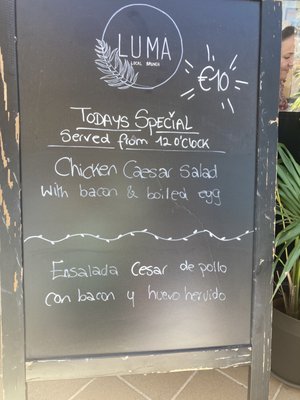 LUMA
LOCAL BRUNCH
€10
TODAYS SPECIAL
Served from 12 o'clock
Chicken Caesar Salad
with bacon & boiled egg
Ensalada Cesar de pollo
con bacon y huevo hervido